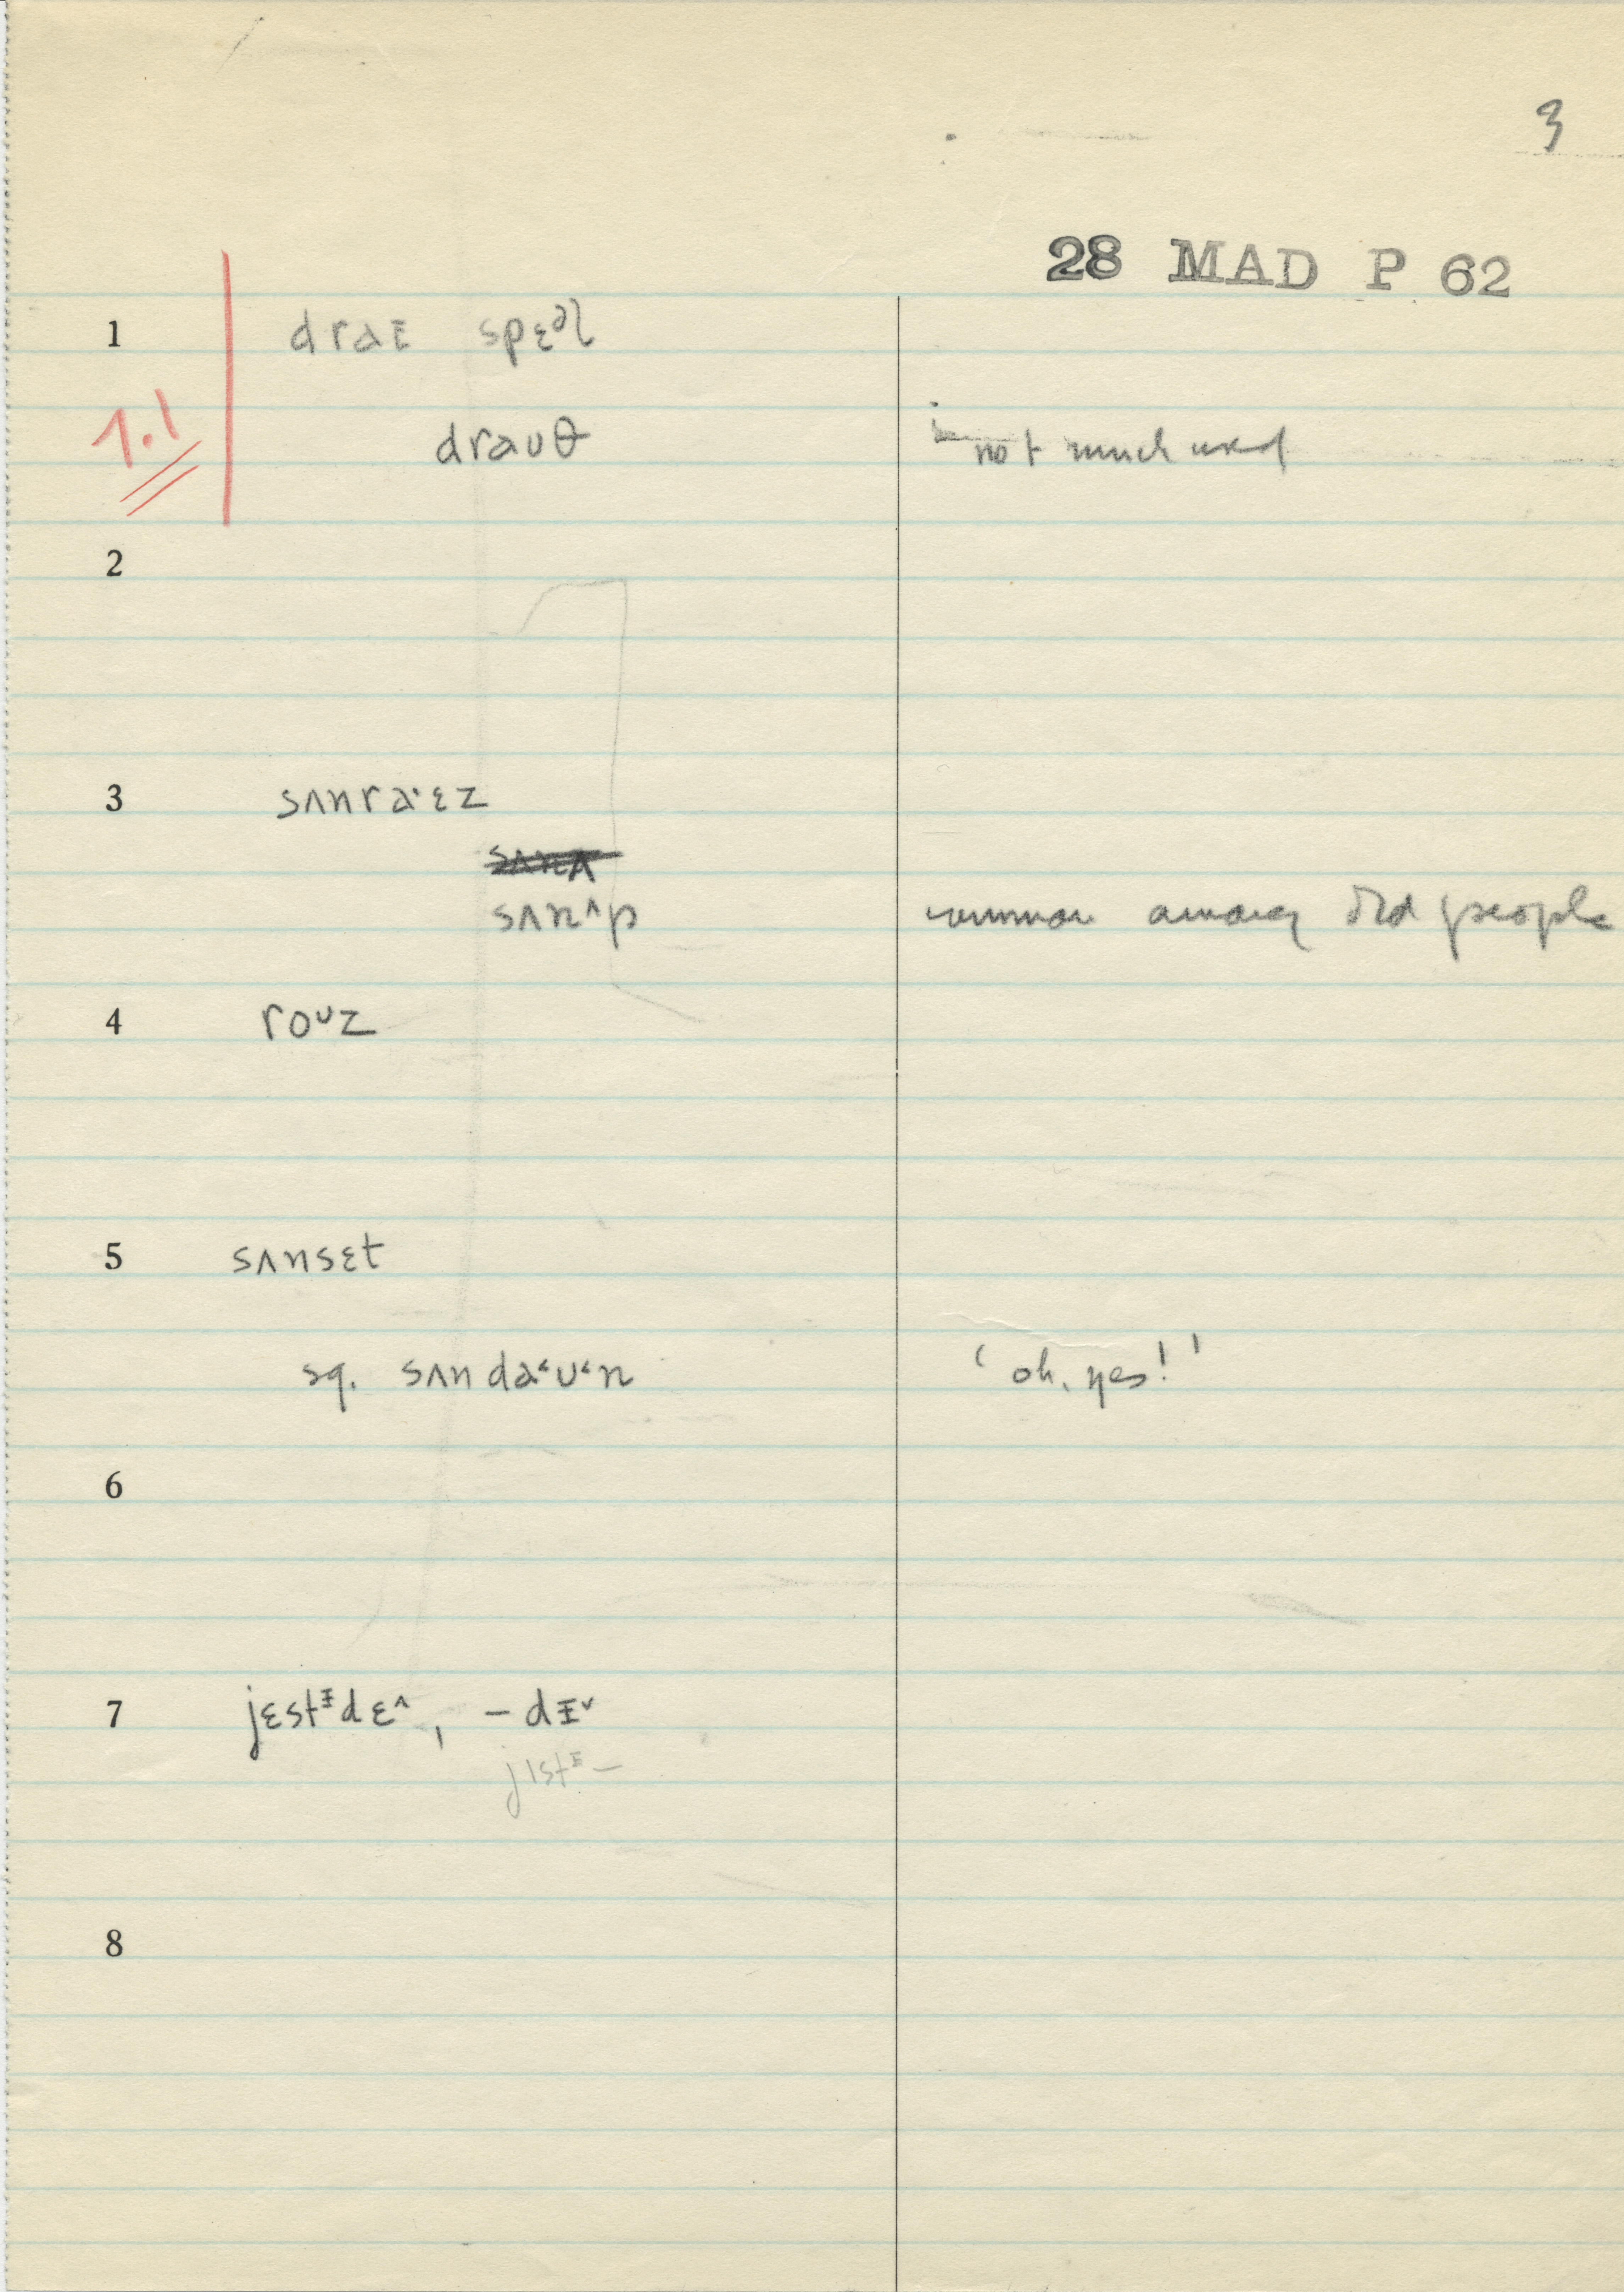 3
28 MAD P 62
1 draᵻ spɛᵊl
1.1 draʊθ not much used
2
3 sʌnra·ɛz
sʌn^p common among old people
4 roᵁz
5 sʌnsɛt
sq. sʌnda˂ʊ˂n 'oh, yes!'
6
7 jɛstᵻdɛ^, –dᵻˇ
jɪstᵻ–
8